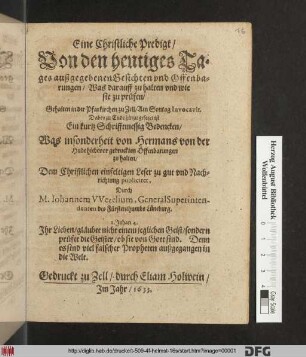 Eine Christliche Predigt/
Von den heutiges Ta-
ges außgegebenen Gesichten vnd Offenba-
rungen/ Was darauff zu halten vnd wie
sie zu prüfen/
Gehalten in der Pfarkirchen zu Zell/ Am Sontag Invocavit.
Ein kurtz Schrifftmessig Bedencken/
Was insonderheit von Hermans von der
Hude hiebevor gedruckten Offenbarungen
zu halten/
Dem Christlichen einfeltigen Leser zu gut vnd Nach-
richtung publiciret,
Durch
M. Johannem VVetzelium, General Superinten-
denten des Fürstenthumbs Lüneburg.
1. Johan. 4.
Ihr Lieben/ gläubet nicht einem jeglichen Geist/ sondern
prüfet die Geister/ ob sie von Gott sind. Denn
es sind viel falscher Propheten außgegangen in
die Welt.
Gedruckt zu Zell/ durch Eliam Holwein/
Im Jahr/ 1633.
Herzog August Bibliothek
Wolfenbüttel
http://diglib.hab.de/drucke/i-509-4f-helmst-16s/start.htm?image=00001
DFG